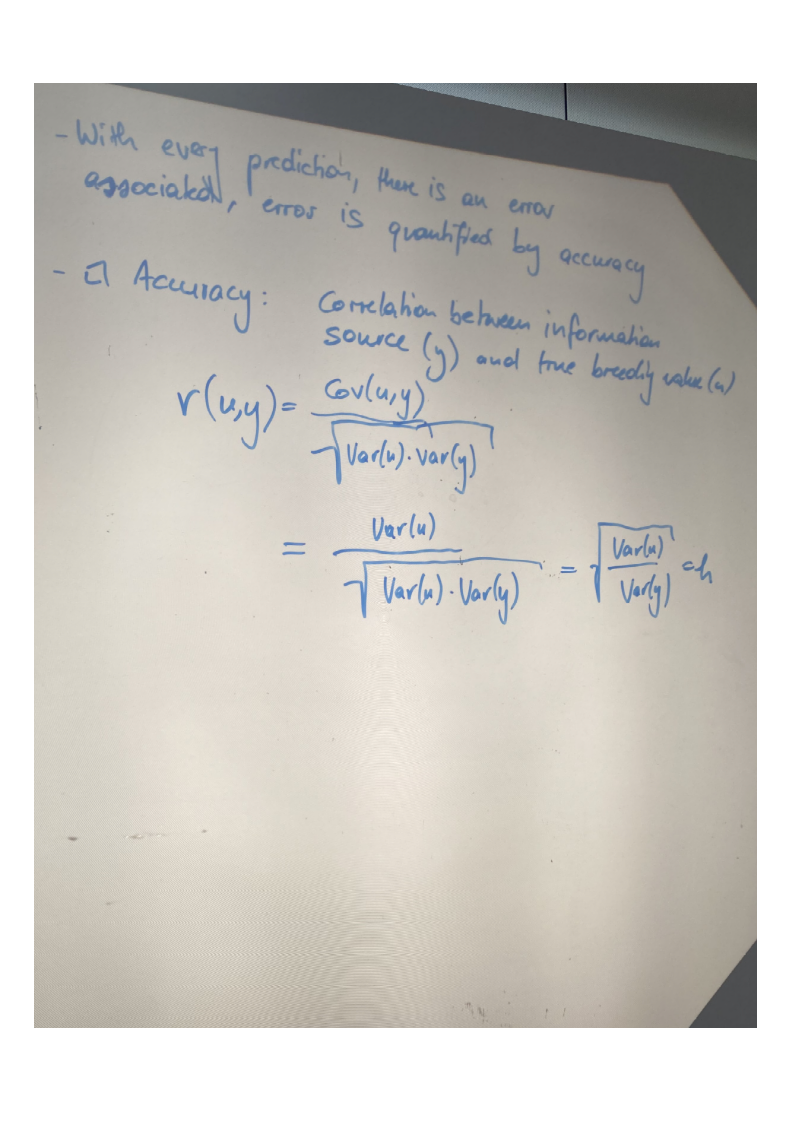 - With every prediction, there is an error
associated, error is quantified by accuracy
- □ Accuracy: Correlation between information
source (y) and true breeding value (u)
r(u,y) = Cov(u,y) / √(Var(u) · Var(y))
= Var(u) / √(Var(u) · Var(y)) = √(Var(u) / Var(y)) = h